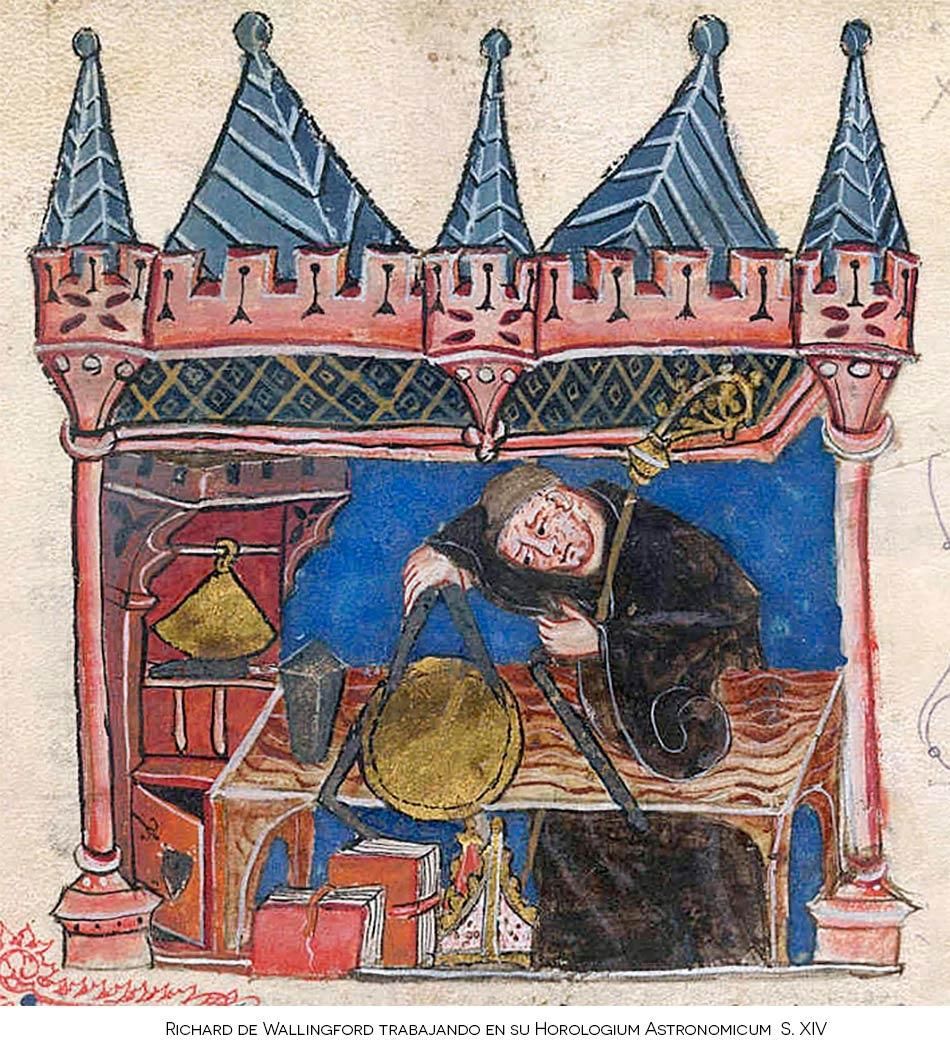 Richard de Wallingford trabajando en su Horologium Astronomicum S. XIV